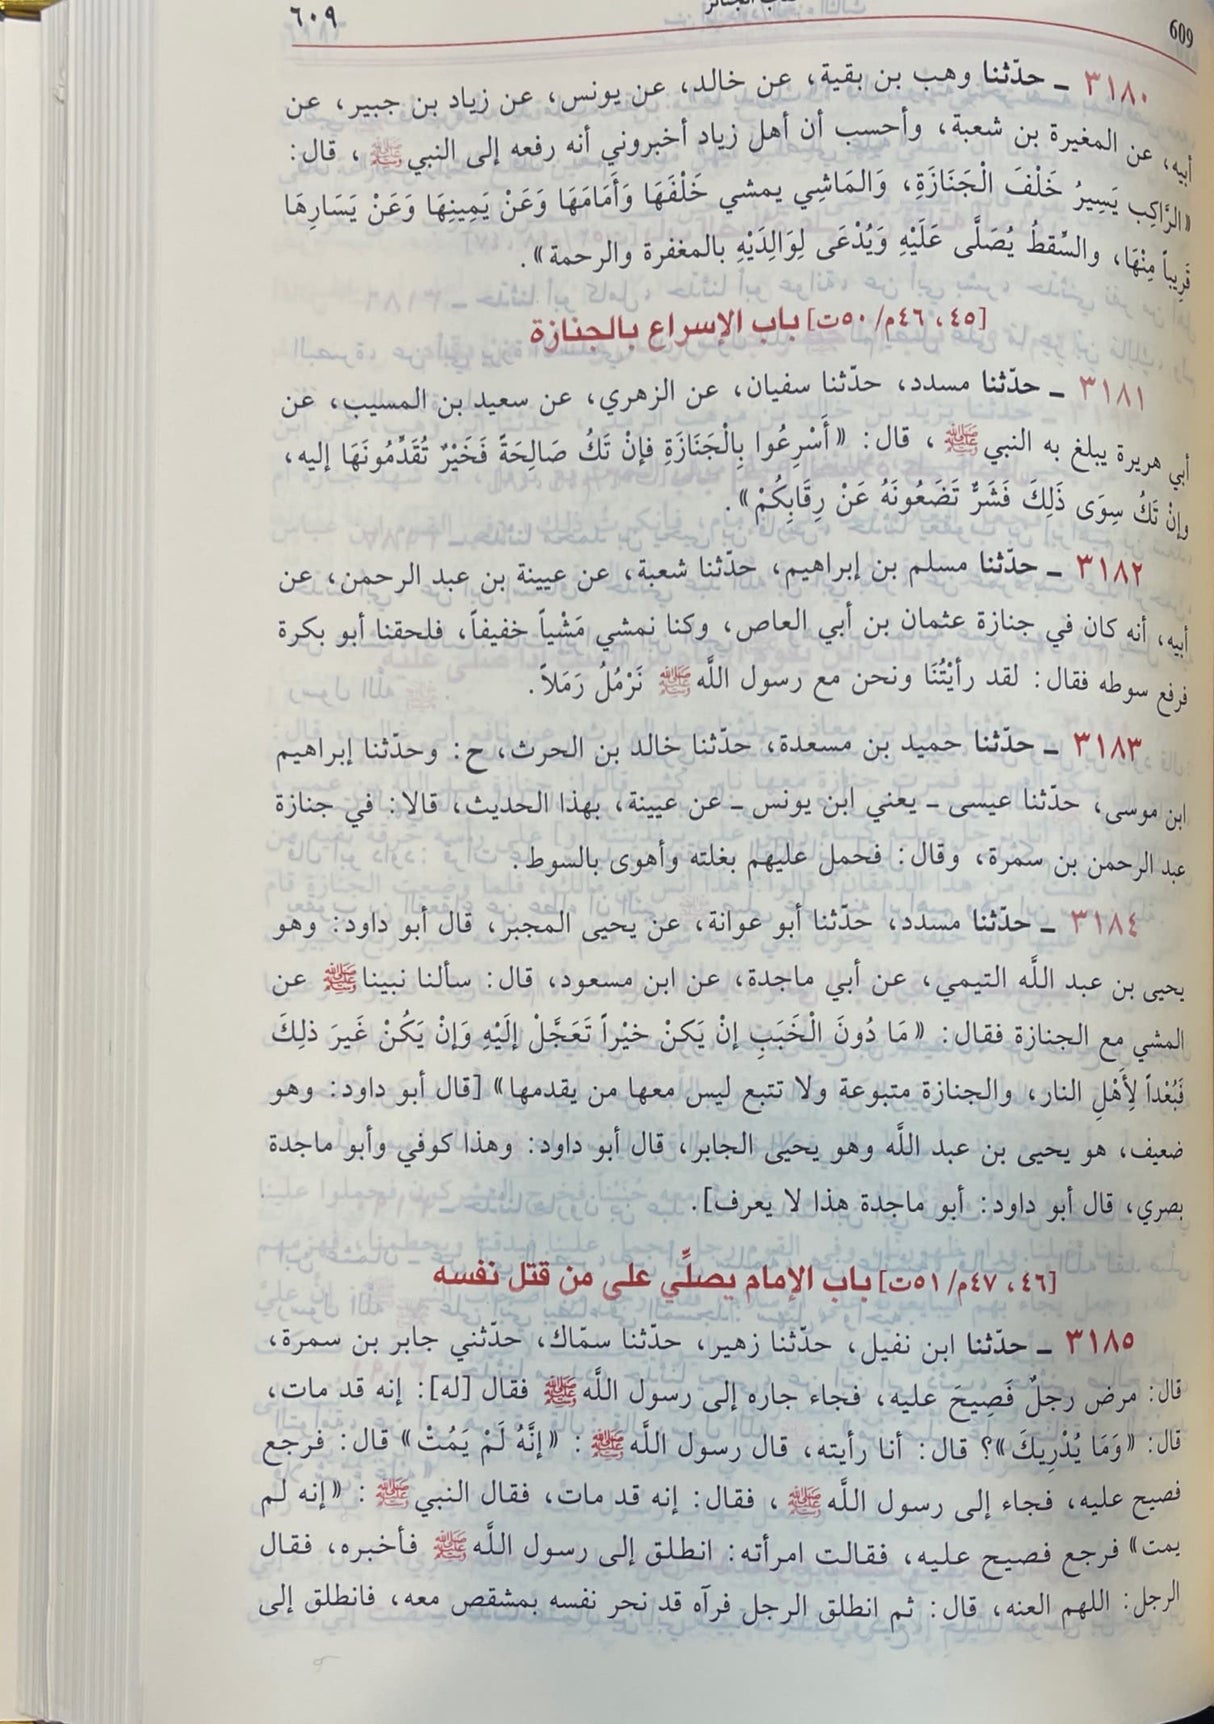 ٦٠٩
609
٣١٨٠ ـ حدّثنا وهب بن بقية، عن خالد، عن يونس، عن زياد بن جبير، عن
أبيه، عن المغيرة بن شعبة، وأحسب أن أهل زياد أخبروني أنه رفعه إلى النبي ﷺ، قال:
«الرَّاكِب يَسِيرُ خَلْفَ الْجَنَازَةِ، وَالمَاشِي يمشي خَلْفَهَا وَأَمَامَهَا وَعَنْ يَمِينِهَا وَعَنْ يَسَارِهَا
قَرِيباً مِنْهَا، والسِّقطُ يُصَلَّى عَلَيْهِ وَيُدْعَى لِوَالِدَيْهِ بالمغفرة والرحمة».
[٤٥، ٤٦م/ ٥٠ت] باب الإسراع بالجنازة
٣١٨١ ـ حدّثنا مسدد، حدّثنا سفيان، عن الزهري، عن سعيد بن المسيب، عن
أبي هريرة يبلغ به النبي ﷺ، قال: «أَسْرِعُوا بِالْجَنَازَةِ فإنْ تَكُ صَالِحَةً فَخَيْرٌ تُقَدِّمُونَهَا إليه،
وإنْ تَكُ سِوَى ذَلِكَ فَشَرٌّ تَضَعُونَهُ عَنْ رِقَابِكُمْ».
٣١٨٢ ـ حدّثنا مسلم بن إبراهيم، حدّثنا شعبة، عن عيينة بن عبد الرحمن، عن
أبيه، أنه كان في جنازة عثمان بن أبي العاص، وكنا نمشي مَشْياً خفيفاً، فلحقنا أبو بكرة
فرفع سوطه فقال: لقد رأيْتُنَا ونحن مع رسول اللَّه ﷺ نَرْمُلُ رَمَلاً.
٣١٨٣ ـ حدّثنا حميد بن مسعدة، حدّثنا خالد بن الحرث، ح: وحدّثنا إبراهيم
ابن موسى، حدّثنا عيسى ـ يعني ابن يونس ـ عن عيينة، بهذا الحديث، قالا: في جنازة
عبد الرحمن بن سمرة، وقال: فحمل عليهم بغلته وأهوى بالسوط.
٣١٨٤ ـ حدّثنا مسدد، حدّثنا أبو عوانة، عن يحيى المجبر، قال أبو داود: وهو
يحيى بن عبد اللَّه التيمي، عن أبي ماجدة، عن ابن مسعود، قال: سألنا نبينا ﷺ عن
المشي مع الجنازة فقال: «مَا دُونَ الْخَبَبِ إنْ يَكنْ خيْراً تَعَجَّلْ إلَيْهِ وَإنْ يَكُنْ غَيرَ ذلِكَ
فَبُعْداً لِأَهْلِ النار، والجنازة متبوعة ولا تتبع ليس معها من يقدمها» [قال أبو داود: وهو
ضعيف، هو يحيى بن عبد اللَّه وهو يحيى الجابر، قال أبو داود: وهذا كوفي وأبو ماجدة
بصري، قال أبو داود: أبو ماجدة هذا لا يعرف].
[٤٦، ٤٧م/ ٥١ت] باب الإمام يصلِّي على من قتل نفسه
٣١٨٥ ـ حدّثنا ابن نفيل، حدّثنا زهير، حدّثنا سمّاك، حدّثني جابر بن سمرة،
قال: مرض رجلٌ فَصِيحَ عليه، فجاء جاره إلى رسول اللَّه ﷺ فقال [له]: إنه قد مات،
قال: «وَمَا يُدْرِيكَ»؟ قال: أنا رأيته، قال رسول اللَّه ﷺ: «إنَّهُ لَمْ يَمُتْ» قال: فرجع
فصيح عليه، فجاء إلى رسول اللَّه ﷺ، فقال: إنه قد مات، فقال النبي ﷺ: «إنه لم
يمت» فرجع فصيح عليه، فقالت امرأته: انطلق إلى رسول اللَّه ﷺ فأخبره، فقال
الرجل: اللهم العنه، قال: ثم انطلق الرجل فرآه قد نحر نفسه بمشقص معه، فانطلق إلى